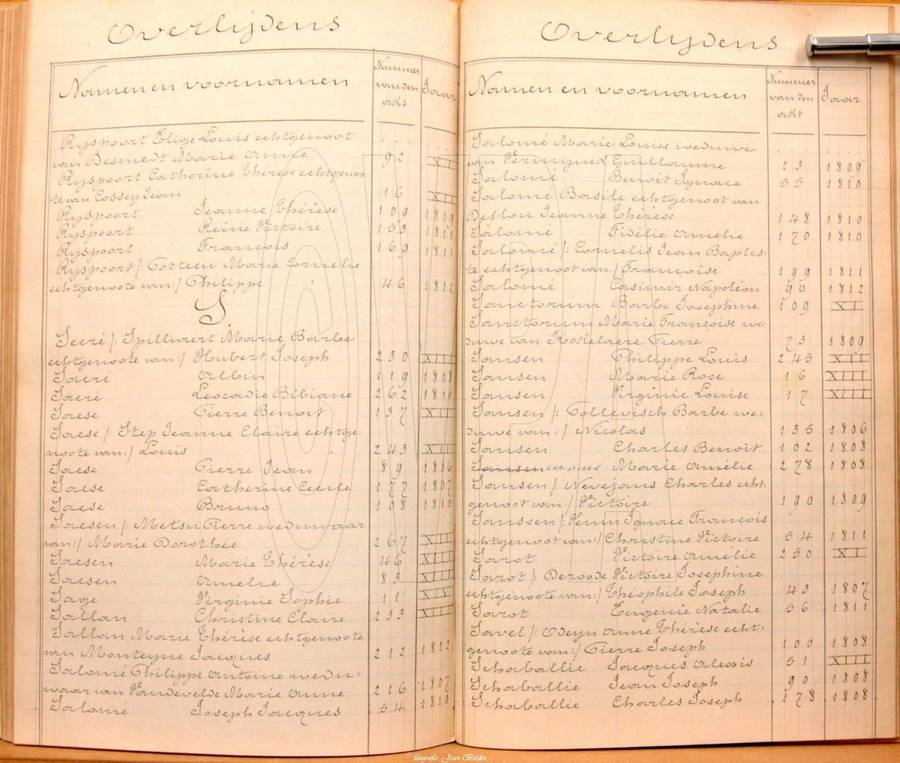 Overlijdens
Namen en voornamen Nummer van den akt Jaar
Ryspoort Elige Louis echtgenoot
van Desmedt Marie Anne 92 XI
Ryspoort Catherine Thérèse echtgenoo
te van Cossey Jean 16 XII
Ryspoort Jeanne Thérèse 109 1809
Ryspoort Reine Victoire 133 1810
Ryspoort François 169 1811
Ryspoort /: Cotteen Marie Cornelie
echtgenoote van:/ Philippe 46 1812
S
Sacré /: Spillwert Marie Barbe
echtgenoote van:/ Hubert Joseph 230 XIII
Sacré Albin 119 1808
Sacré Léocadie Bibiane 262 1810
Saese Pierre Benoit 137 XII
Saese /: Step Jeanne Claire echtge-
noote van:/ Louis 243 XII
Saese Pierre Jean 89 1806
Saese Catherine Cecile 177 1807
Saese Bruno 108 1810
Saesen /: Metsu Pierre weduwaar
van:/ Marie Dorothée 267 XII
Saesen Marie Thérèse 46 XIII
Saesen Amelie 83 XIII
Sage Virginie Sophie 11 XIV
Sallan Christine Claire 233 XIII
Sallan Marie Thérèse echtgenoote
van Monteyne Jacques 212 1812
Salomé Philippe Antoine wedu-
waar van Vandevelde Marie Anne 216 1807
Salomé Joseph Jacques 54 1810
Overlijdens
Namen en voornamen Nummer van den akt Jaar
Salomé Marie Louise weduwe
van Guillaume 23 1809
Salomé Benoit Ignace 55 1810
Salomé Basile echtgenoot van
Deslou Jeanne Thérèse 148 1810
Salomé Fidélie Amelie 170 1810
Salomé /: Cornelis Jean Baptis-
te echtgenoot van:/ Françoise 199 1811
Salomé Casimir Napoléon 90 1812
Sanctorum Barbe Josephine 109 XI
Sanctorum Marie Françoise we
duwe van Roskelaere Pierre 73 1809
Sansen Philippe Louis 245 XII
Sansen Marie Rose 16 XIII
Sansen Virginie Louise 17 XIII
Sansen /: Collevisch Barbe we-
duwe van:/ Nicolas 135 1806
Sansen Charles Benoit 102 1808
Sansen Marie Amélie 278 1808
Sansen /: Nevejans Charles echt
genoot van:/ Victoire 190 1809
Sanssen /: Venin Ignace François
echtgenoot van:/ Christine Victoire 54 1811
Sarot Victoire Amélie 250 XI
Sarot /: Deroode Victoire Josephine
echtgenoote van:/ Théophile Joseph 43 1807
Sarot Eugenie Natalie 56 1811
Savel /: Odeyn Anne Thérèse echt-
genoote van:/ Pierre Joseph 100 1808
Schaballie Jacques Alexis 51 XIII
Schaballie Jean Joseph 90 1808
Schaballie Charles Joseph 178 1808